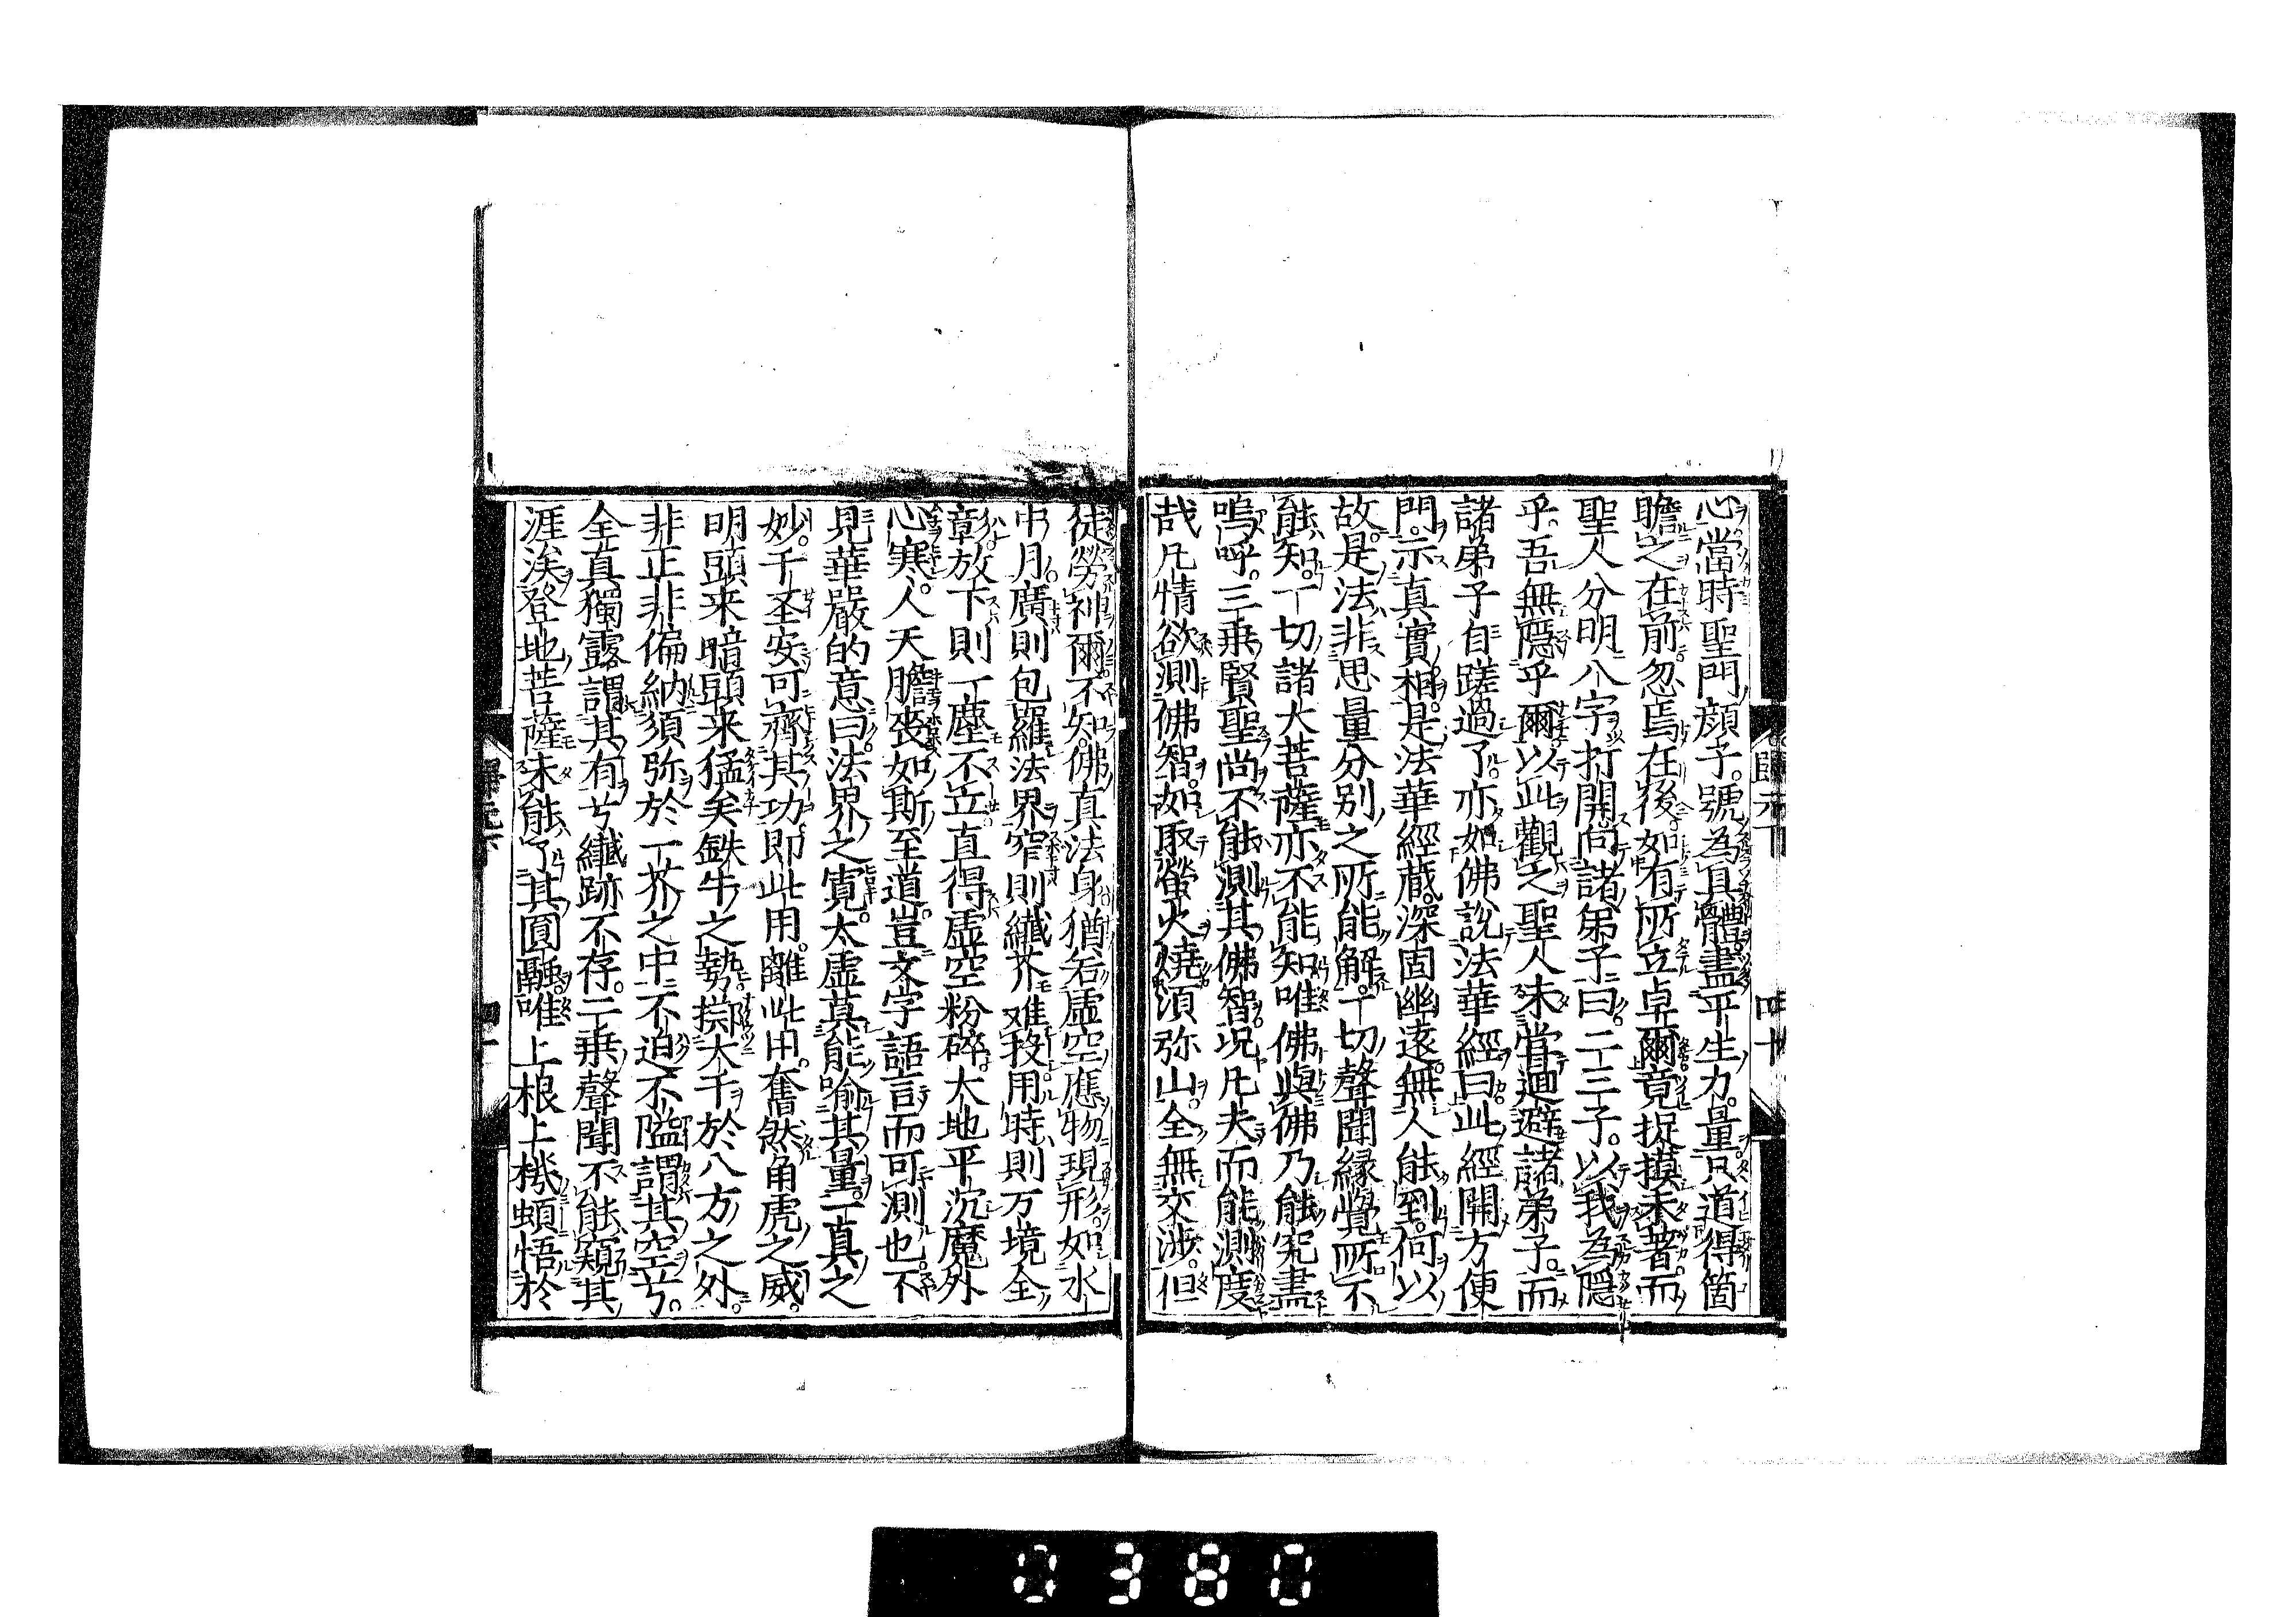 心當時聖門顔子號為具體盡平生力量只道得箇
瞻之在前忽焉在後如有所立卓爾竟捉摸未著而
聖人分明八字打開向諸弟子曰二三子以我為隱
乎吾無隱乎爾以此觀之聖人未嘗廻避諸弟子而
諸弟子自蹉過了亦如佛說法華經曰此經開方便
門示真實相是法華經蔵深固幽遠無人能到何以
故是法非思量分別之所能解一切聲聞縁覺所不
能知一切諸大菩薩亦不能知唯佛與佛乃能究盡
嗚呼三乗賢聖尚不能測其佛智况凡夫而能測度
哉凡情欲測佛智如取螢火燒須弥山全無交渉但
徒勞神爾不知佛真法身猶若虚空應物現形如水
中月廣則包羅法界窄則纎芥难投用時則万境全
彰放下則一塵不立直得虚空粉碎大地平沉魔外
心寒人天膽喪如斯至道豈文字語言而可測也不
見華嚴的意曰法界之寛太虚莫能喻其量一真之
妙千圣安可齊其功即此用離此用奮然角虎之威
明頭来暗頭来猛矣鉄牛之勢擲大千於八方之外
非正非偏納須弥於一芥之中不迫不隘謂其空兮
全真獨露謂其有兮纎跡不存二乗聲聞不能窺其
涯涘登地菩薩未能了其圓融唯上根上機頓悟於
四十
0380